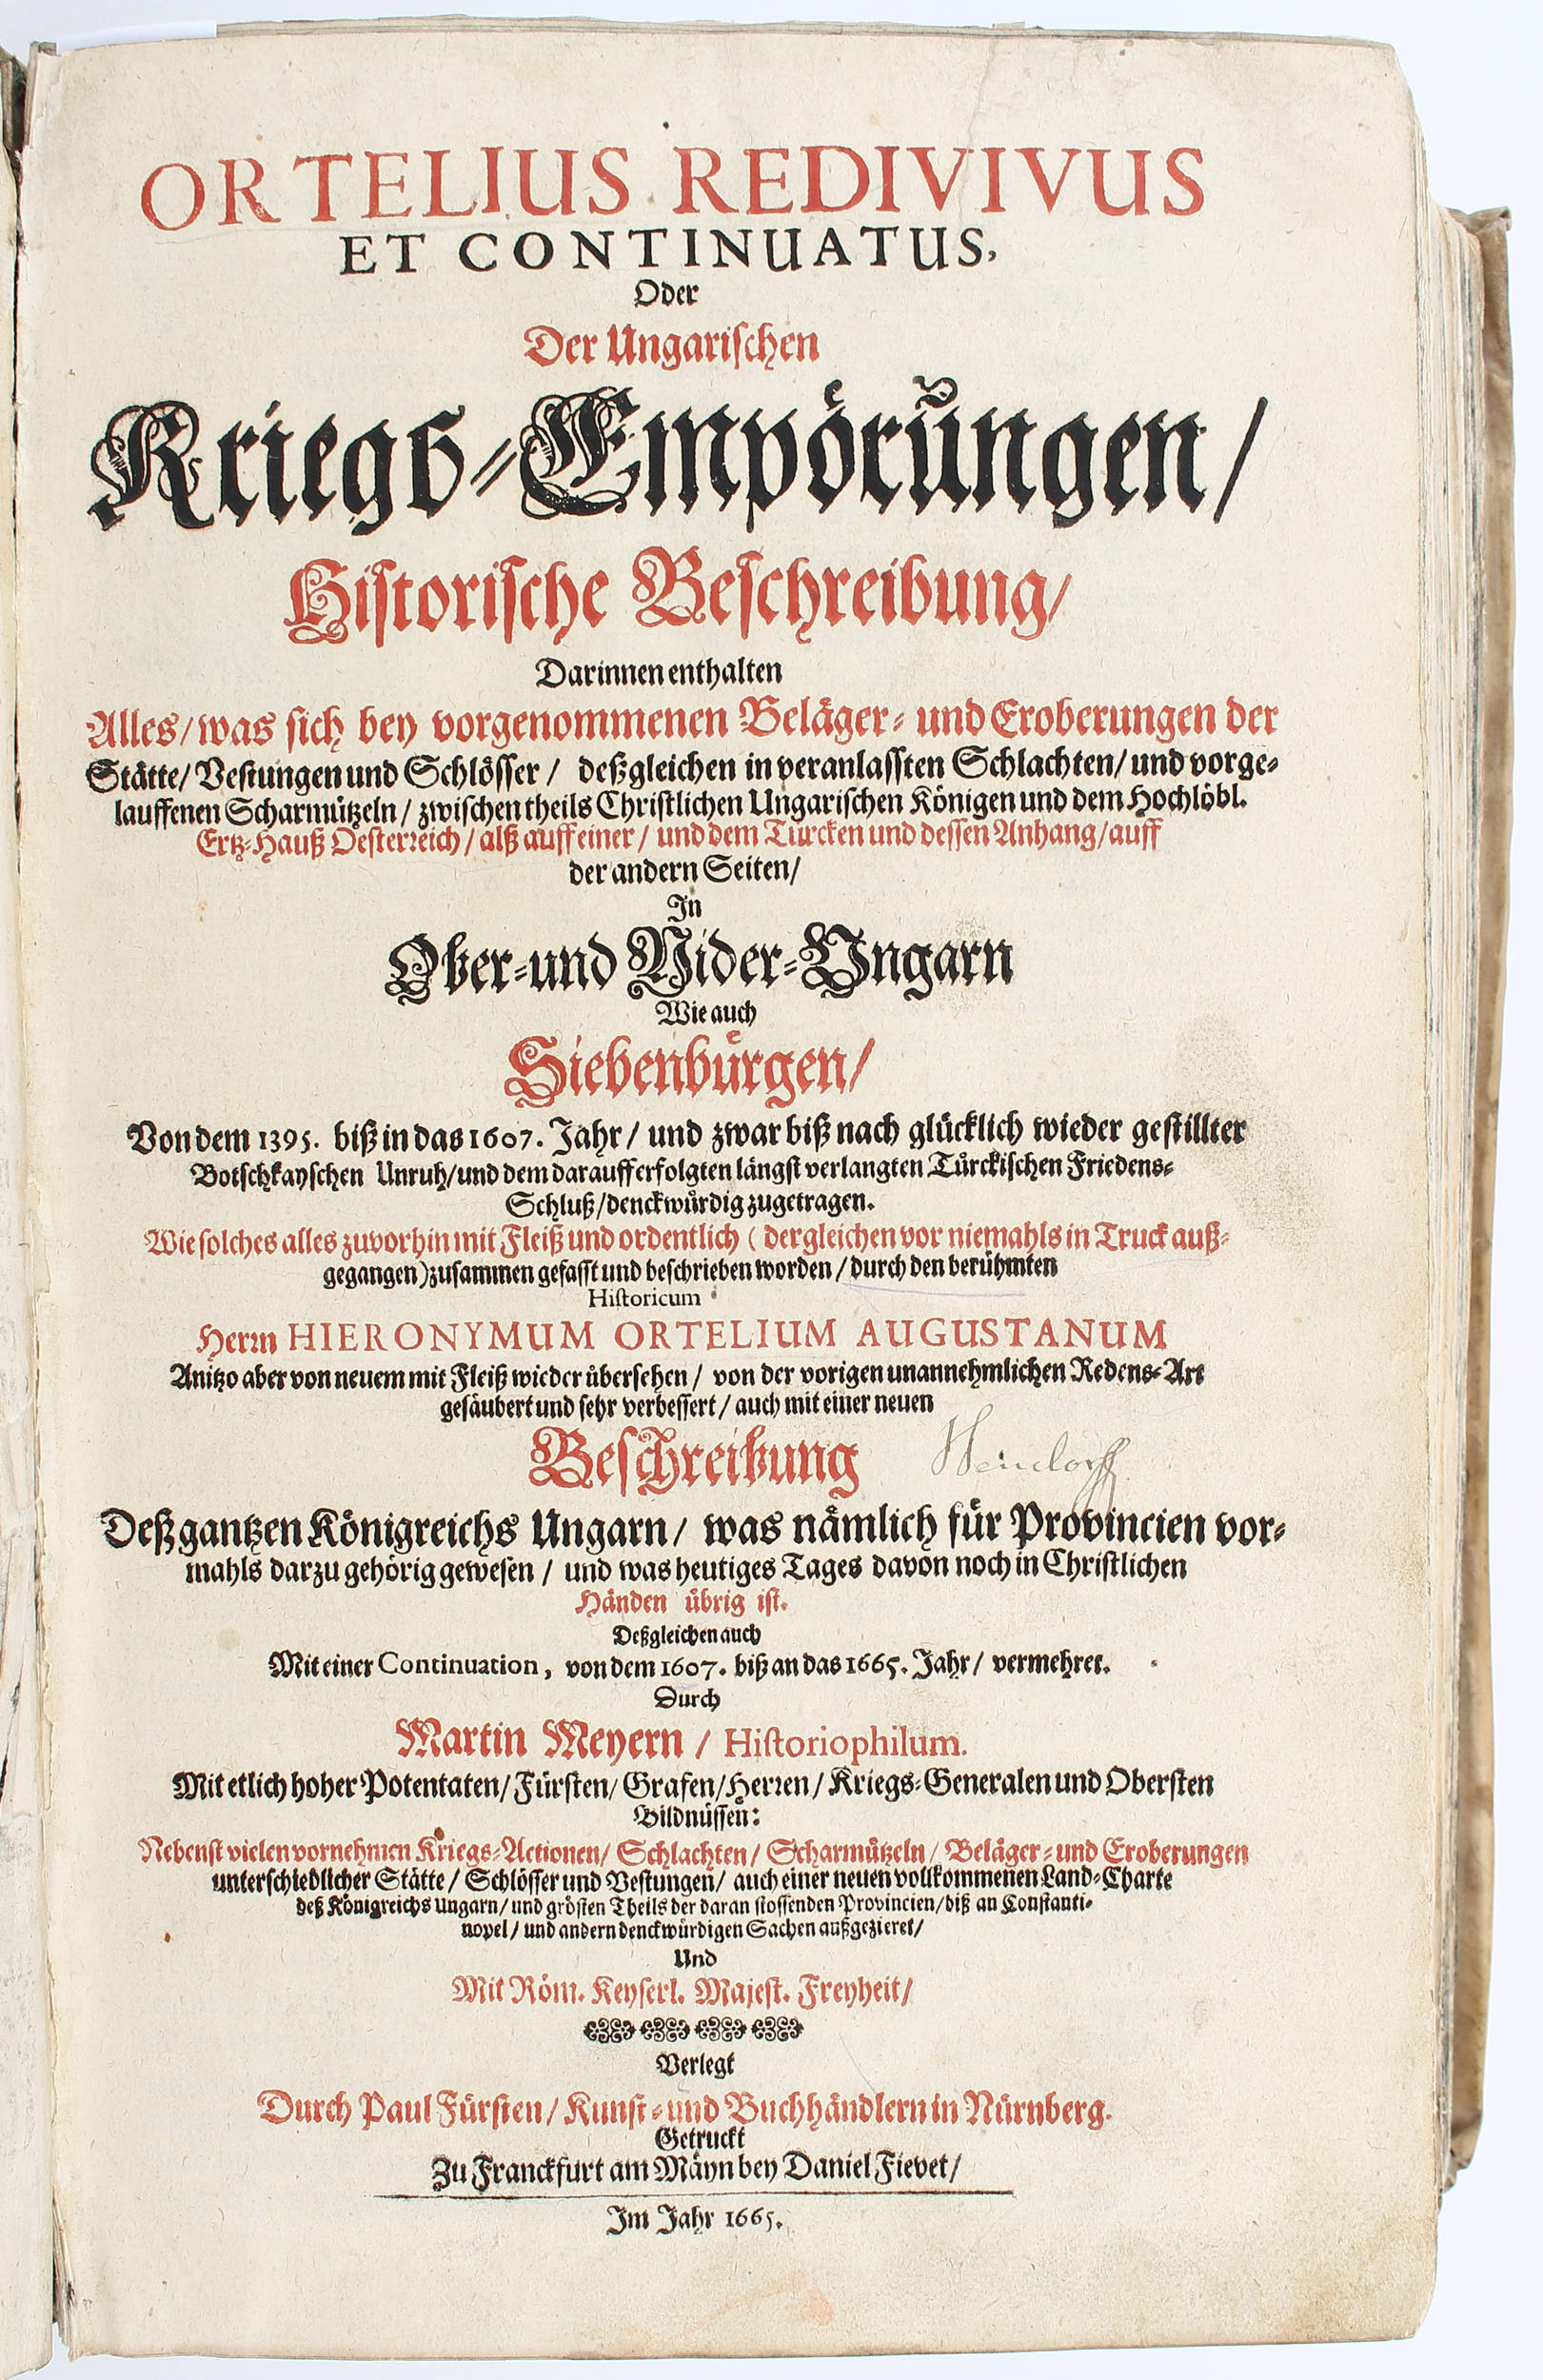 ORTELIUS REDIVIVUS
ET CONTINUATUS,
Oder
Der Ungarischen
Kriegs-Empörungen/
Historische Beschreibung/
Darinnen enthalten
Alles/ was sich bey vorgenommenen Beläger- und Eroberungen der
Stätte/ Vestungen und Schlösser/ deßgleichen in veranlassten Schlachten/ und vorge-
lauffenen Scharmützeln/ zwischen theils Christlichen Ungarischen Königen und dem Hochlöbl.
Ertz-Hauß Oesterreich/ alß auff einer/ und dem Türcken und dessen Anhang/ auff
der andern Seiten/
In
Ober- und Nider-Ungarn
Wie auch
Siebenbürgen/
Von dem 1395. biß in das 1607. Jahr/ und zwar biß nach glücklich wieder gestillter
Botschkayschen Unruh/ und dem darauff erfolgten längst verlangten Türckischen Friedens-
Schluß/ denckwürdig zugetragen.
Wie solches alles zuvorhin mit Fleiß und ordentlich (dergleichen vor niemahls in Truck auß-
gegangen) zusammen gefasst und beschrieben worden/ durch den berühmten
Historicum
Herrn HIERONYMUM ORTELIUM AUGUSTANUM
Anitzo aber von neuem mit Fleiß wieder übersehen/ von der vorigen unannehmlichen Redens-Art
gesäubert und sehr verbessert/ auch mit einer neuen
Beschreibung
Deß gantzen Königreichs Ungarn/ was nämlich für Provincien vor-
mahls darzu gehörig gewesen/ und was heutiges Tages davon noch in Christlichen
Händen übrig ist.
Deßgleichen auch
Mit einer Continuation, von dem 1607. biß an das 1665. Jahr/ vermehret.
Durch
Martin Meyern/ Historiophilum.
Mit etlich hoher Potentaten/ Fürsten/ Grafen/ Herren/ Kriegs-Generalen und Obersten
Bildnüssen:
Nebenst vielen vornehmen Kriegs-Actionen/ Schlachten/ Scharmützeln/ Beläger- und Eroberungen
unterschiedlicher Stätte/ Schlösser und Vestungen/ auch einer neuen vollkommenen Land-Charte
deß Königreichs Ungarn/ und grösten Theils der daran stossenden Provincien/ biß an Constanti-
nopel/ und andern denckwürdigen Sachen außgezieret/
Und
Mit Röm. Keyserl. Majest. Freyheit/
Verlegt
Durch Paul Fürsten/ Kunst- und Buchhändlern in Nürnberg.
Getruckt
Zu Franckfurt am Mäyn bey Daniel Fievet/
Im Jahr 1665.